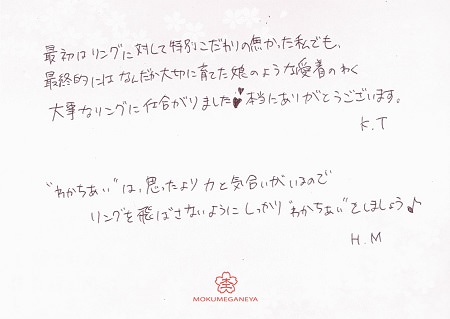 最初はリングに対して特別こだわりの無かった私でも、
最終的にはなんだか大切に育てた娘のような愛着のわく
大事なリングに仕合がりました 本当にありがとうございます。
K.T
"わかちあい"は、思ったより力と気合いがいるので
リングを飛ばさないようにしっかり"わかちあい"をしましょう♪
H.M
MOKUMEGANEYA